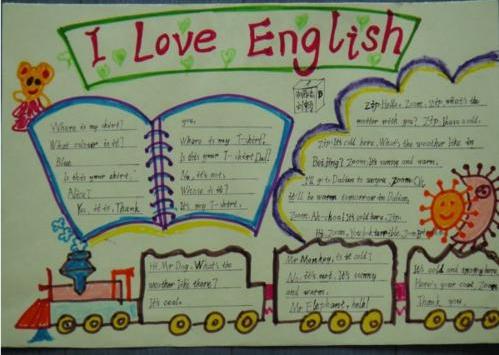 I Love English
Where is my shirt?
What colour is it?
Blue
Is this your shirt.
Alice?
Yes, it is, Thank
you.
Where is my T-shirt.
Is this your T-shirt
No, it's not.
Whose is it?
It's my T-shirt.
Zip: Hello, Zoom. Zip, what's the
matter with you? Zip: I have cold.
Zip: It's cold here. What's the weather like in
Beijing? Zoom: It's sunny and warm.
I'll go to Dalian to Zoom: Oh,
it'll be warm tomorrow in Dalian.
Zoom: It's cold here, Zip.
Hi, Zoom, You look terrible, Zoom
Hi, Mr Dog, What's the
weather like there?
It's cool.
Mr Monkey, is it cold?
No, it's not. It's sunny
and warm.
Mr Elephant, help!
It's cold and here.
Here's your coat, Zoom
Thank you.